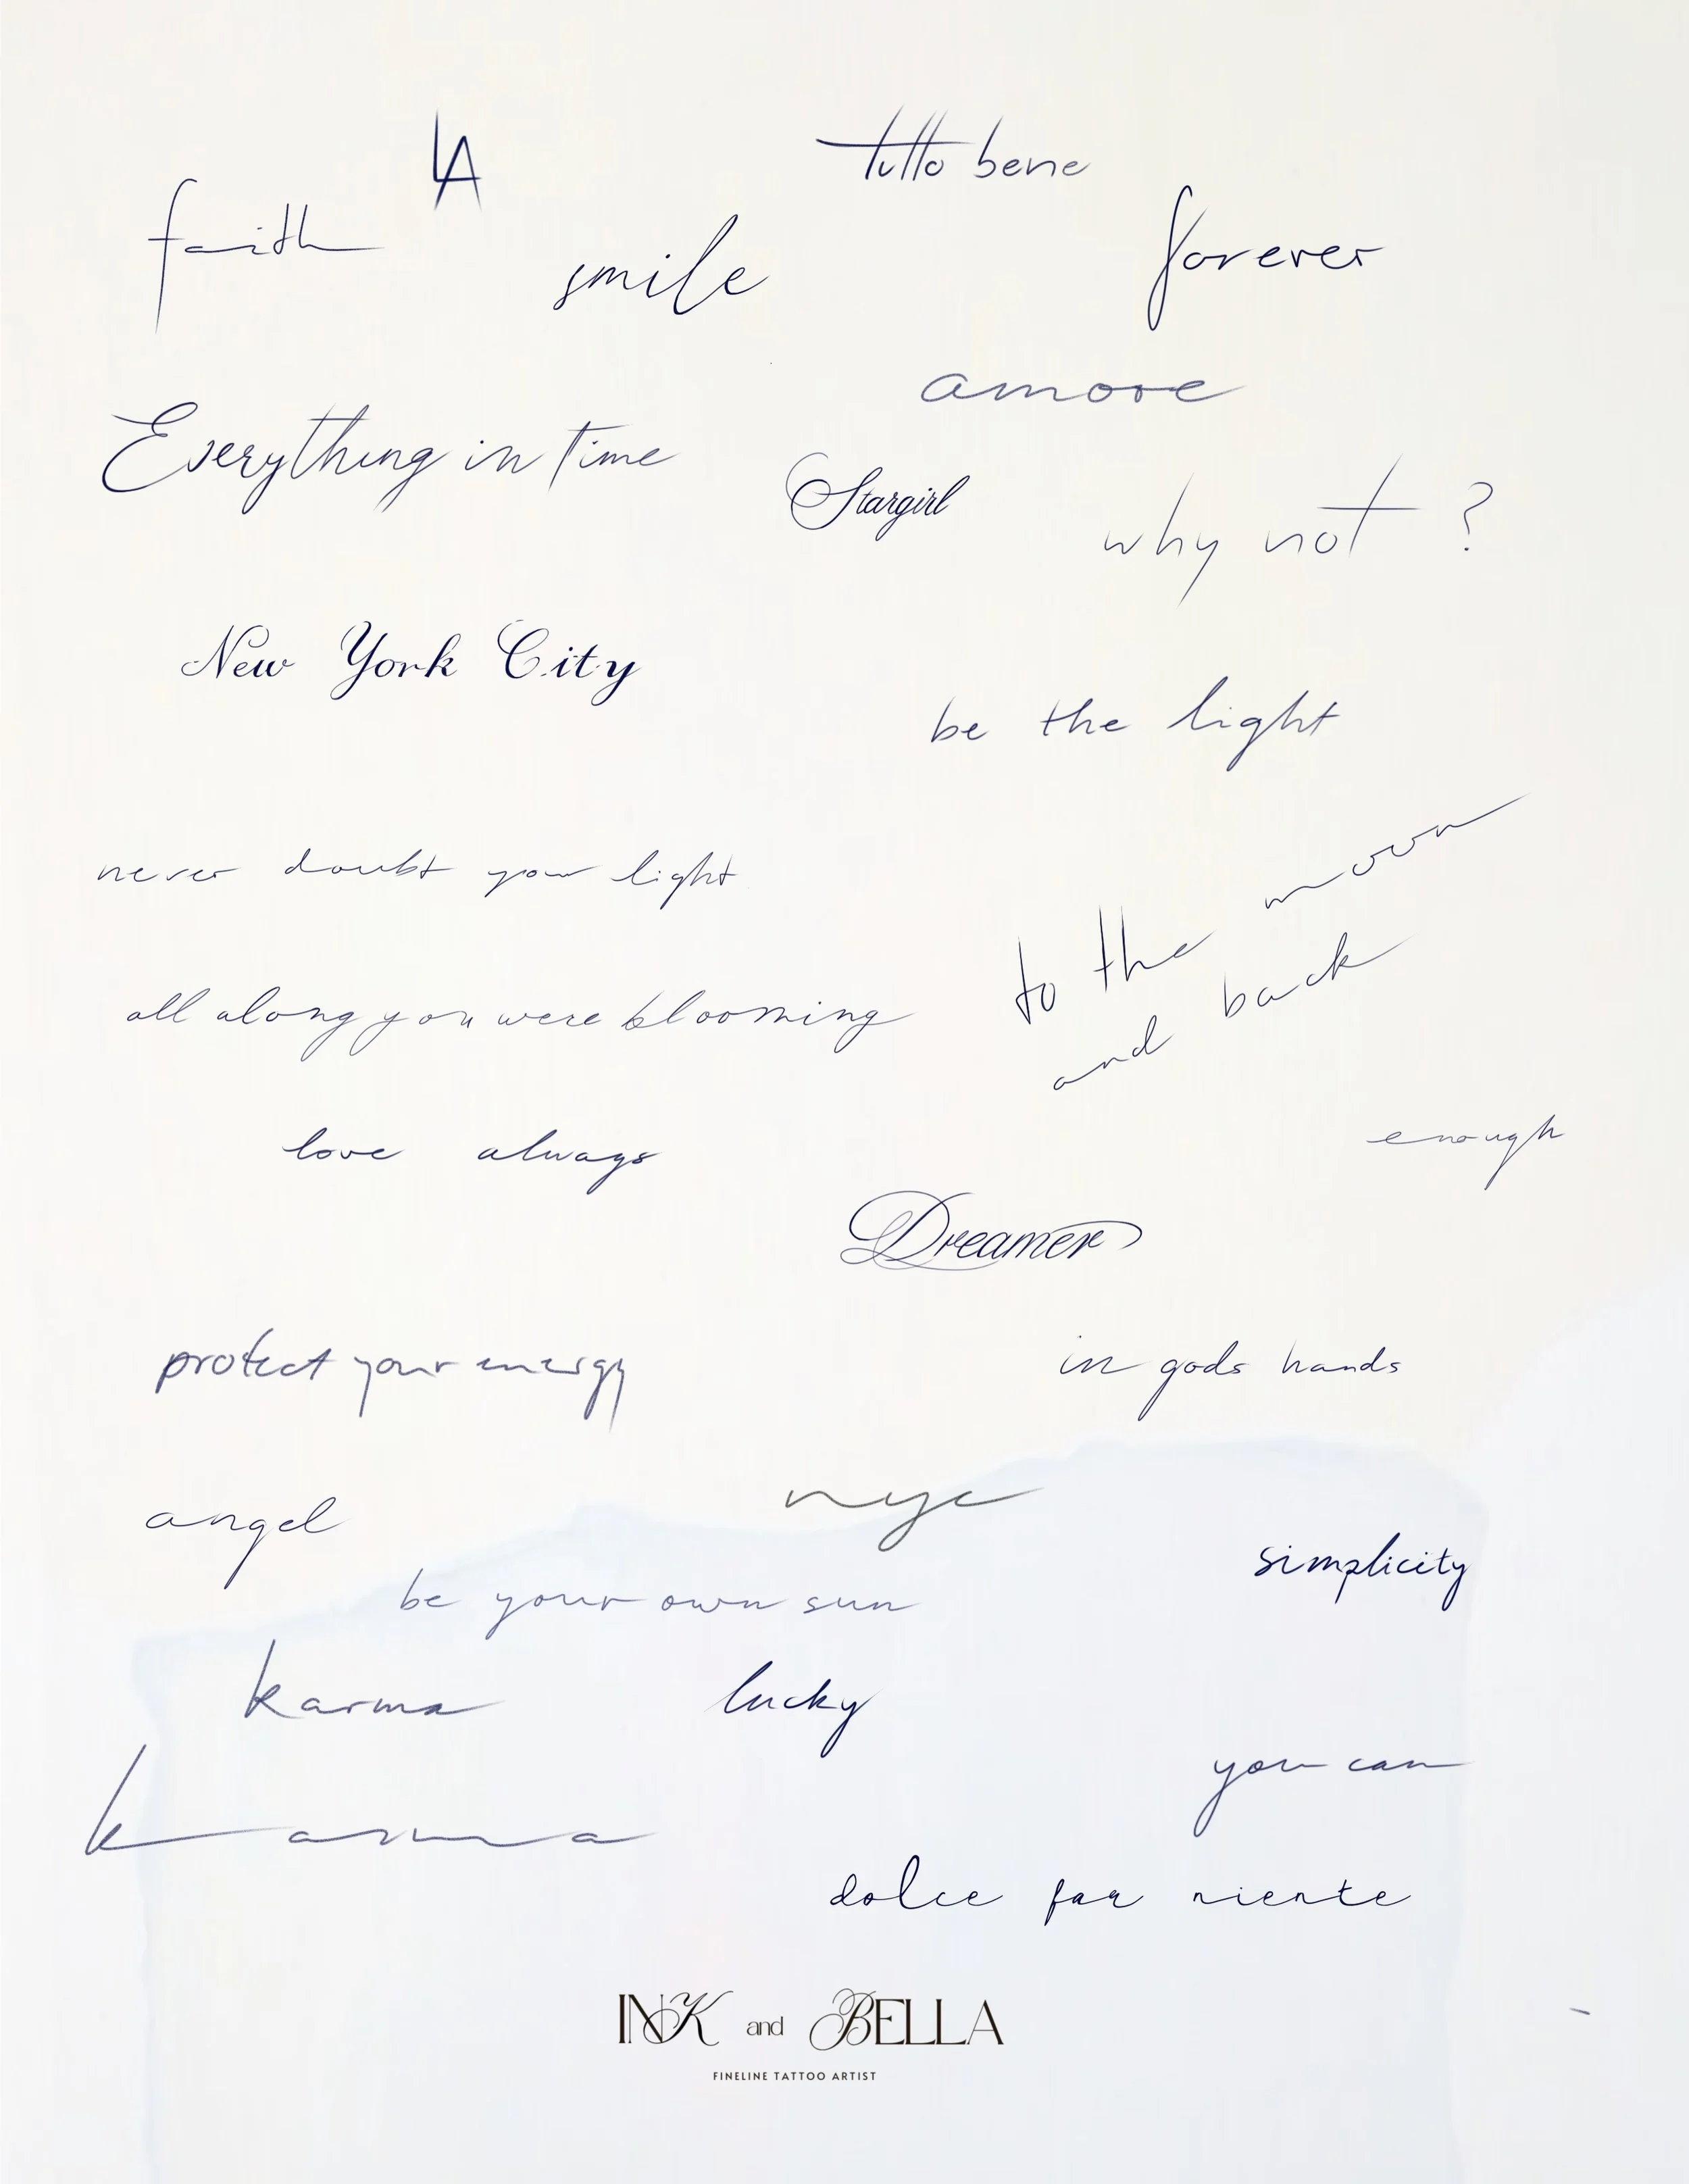 LA
tutto bene
faith
smile
forever
amore
Everything in time
Stargirl
why not ?
New York City
be the light
never doubt your light
to the moon
and back
all along you were blooming
love always
enough
Dreamer
protect your energy
in gods hands
angel
nyc
simplicity
be your own sun
karma
lucky
you can
karma
dolce far niente
INK and BELLA
FINELINE TATTOO ARTIST